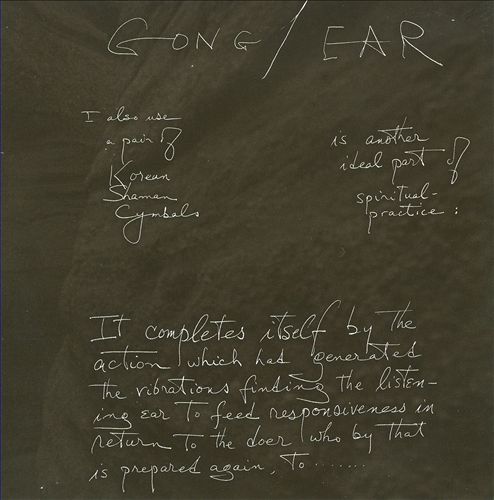 GONG / EAR
I also use
a pair of
Korean
Shaman
Cymbals
is another
ideal part of
spiritual-
practice:
It completes itself by the
action which had generated
the vibrations finding the listen-
ing ear to feed responsiveness in
return to the doer who by that
is prepared again, to .......